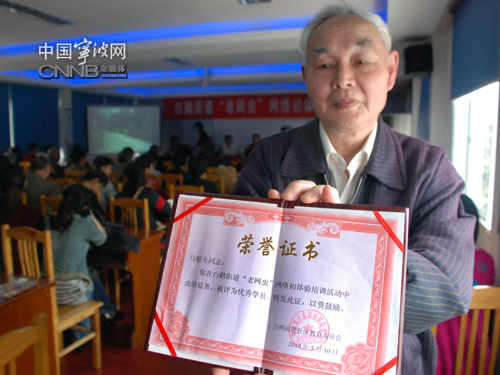 中国宁波网
CNNB 全媒体
白鹤街道“老网虫”网络初
荣誉证书
马根夫同志:
你在白鹤街道“老网虫”网络初体验培训活动中
成绩显著,被评为优秀学员,特发此证,以资鼓励。
白鹤街道社区教育委员会
2010年5月10日